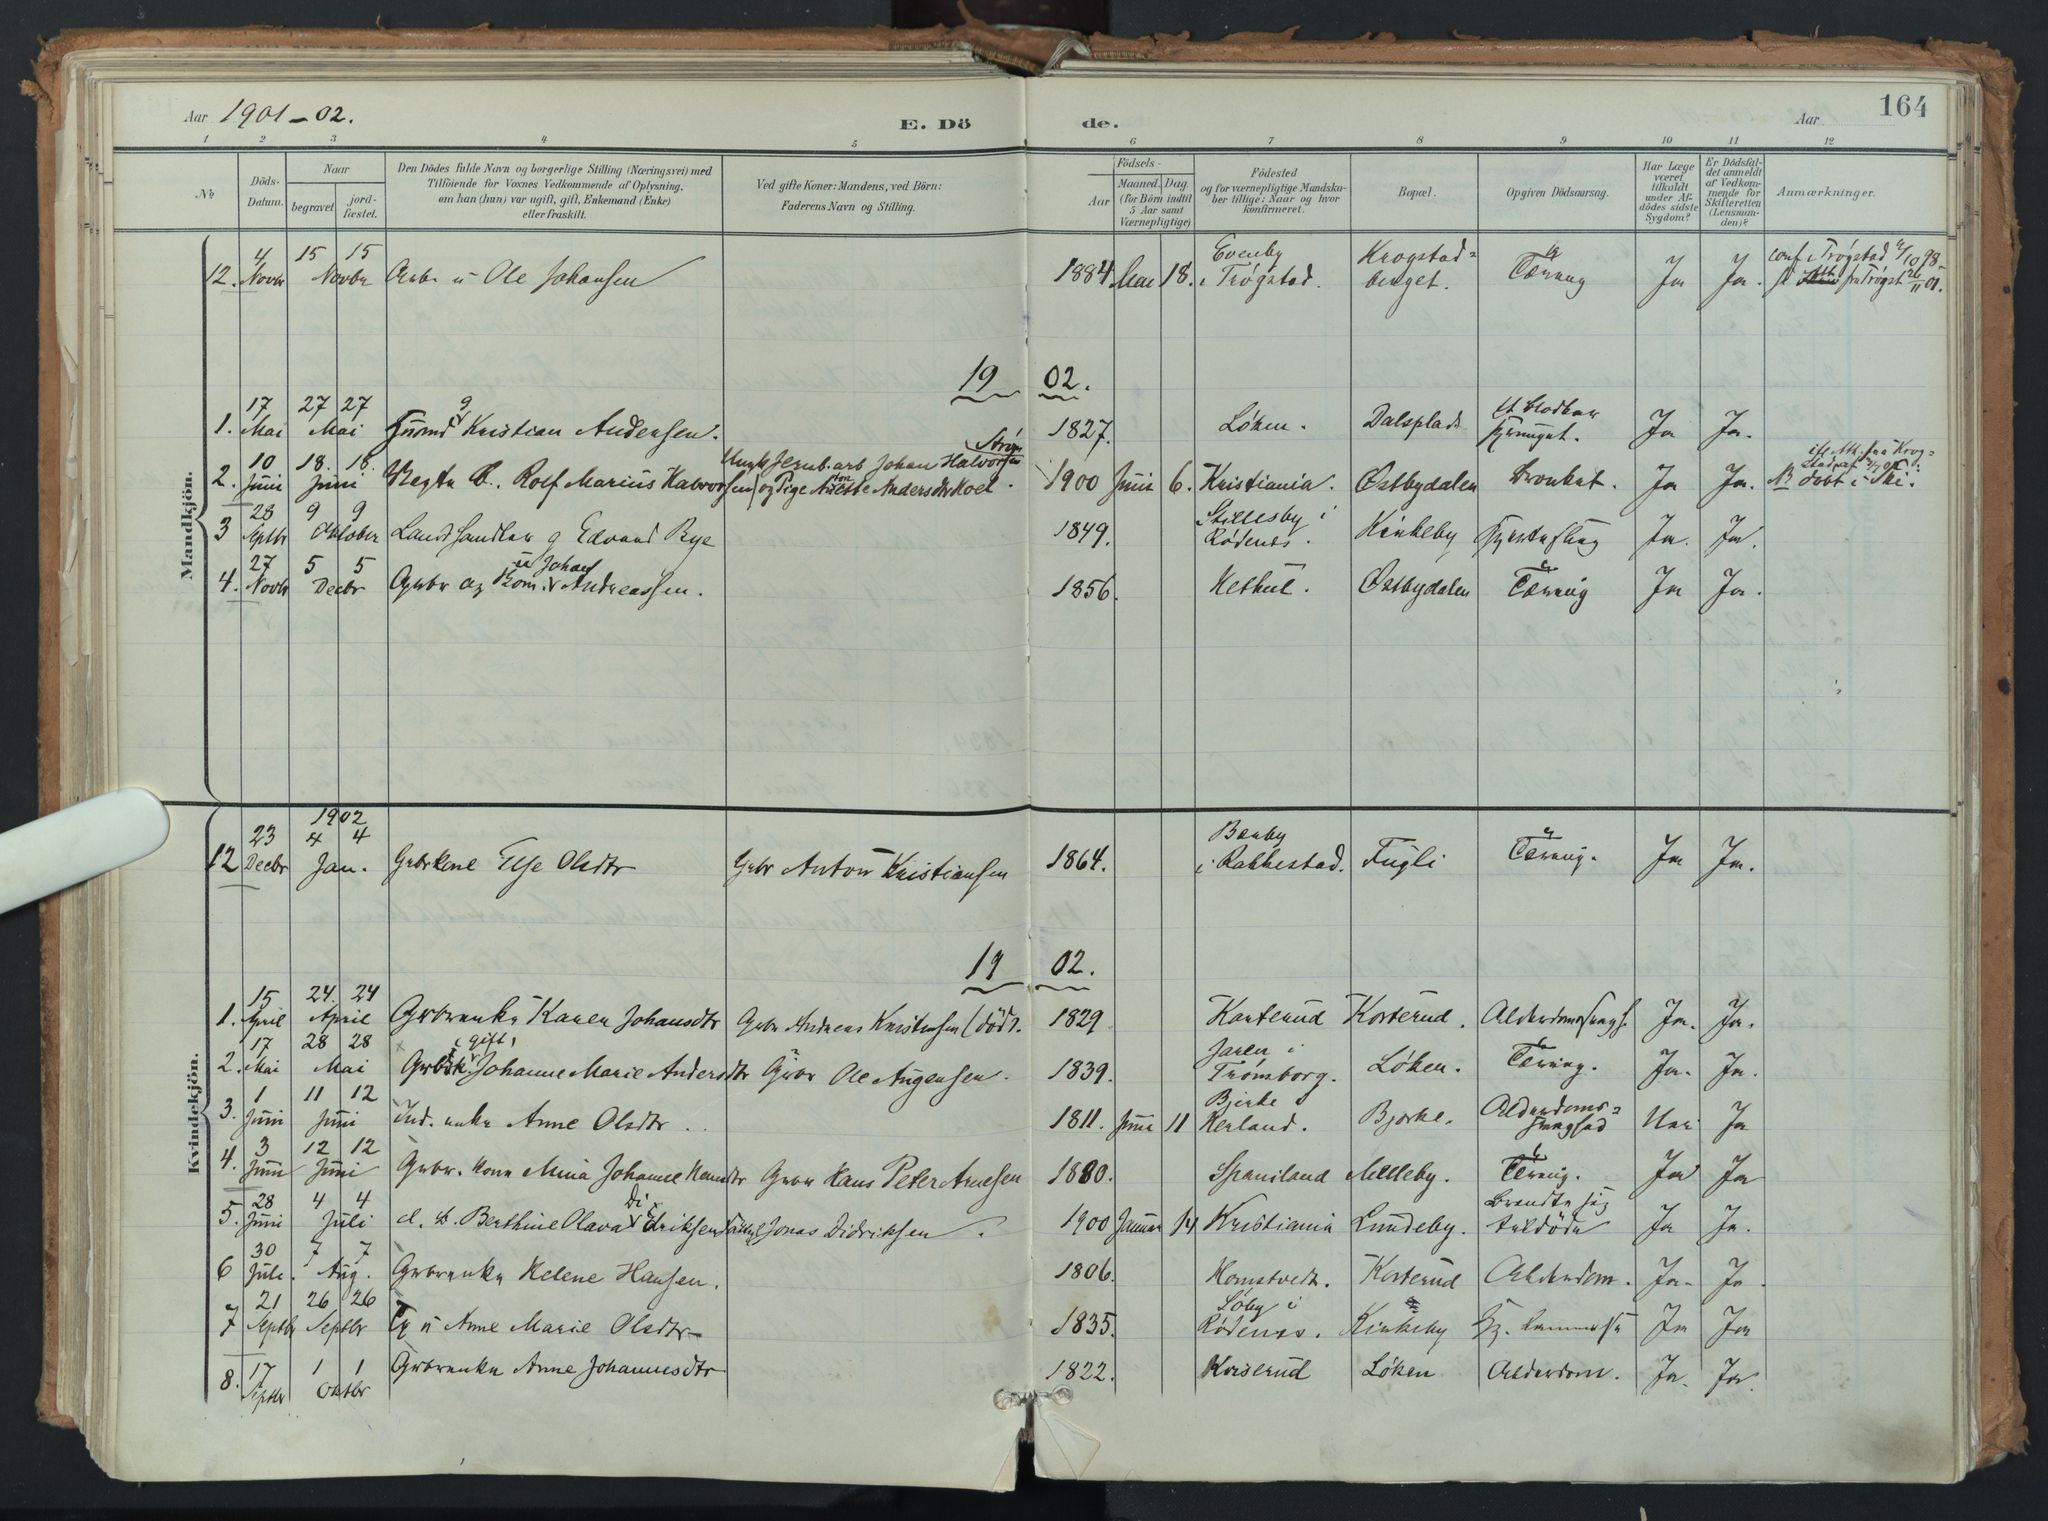 Aar 1901-02.
E. Döde.
Aar
164
1 2 3 4 5 6 7 8 9 10 11 12
№
Döds-Datum.
Naar
begravet
jordfæstet.
Den Dödes fulde Navn og borgerlige Stilling (Næringsvei) med
Tilföiende for Voxnes Vedkommende af Oplysning,
om han (hun) var ugift, gift, Enkemand (Enke)
eller fraskilt.
Ved gifte Koner: Mandens, ved Börn:
Faderens Navn og Stilling.
Födsels-
Aar
Maaned. Dag.
(for Börn indtil
5 Aar samt
Værnepligtige)
Födested
og for værnepligtige Mandskaber
tillige: Naar og hvor
konfirmeret.
Bopæl.
Opgiven Dödsaarsag.
Har Læge
været
tilkaldt
under Afdödes
sidste
Sygdom?
Er Dödsfaldet
anmeldt
af Vedkommende
for
Skifteretten
(Lensmanden)?
Anmærkninger.
Mandkjön.
12. 4 Novbr 15 15 Novbr Arb. u Ole Johansen 1884 Mai 18. i Trøgstad. Krogstadberget. Tæring Ja Ja. conf. i Trøgstad
1902.
1. 17 Mai 27 27 Mai Kristian Andersen. 1827. Løken. Dalsplads Ja Ja.
2. 10 Juni 18. 18. Juni Rolf Marius Halvorsen Johan Halvorsen og Pige Andersdtr 1900 Juni 6. Kristiania. Østbydalen Ja Ja. døbt i Ski.
3 28 Septbr 9 9 Oktober Landhandler g Edvard Rye 1849. Rødenes. Kinkeby Hjerteslag Ja. Ja.
4. 27 Novbr 5 5 Decbr Grbr og u Johan Andreassen. 1856. Østbydalen Tæring Ja Ja.
Kvindekjön.
12 23 Decbr 1902 4 4 Jan. Grbrkone Else Olsdtr Grbr Anton Kristiansen 1864. i Rakkestad. Fugli Tæring. Ja Ja.
1902.
1. 15 April 24. 24 April Grbrenke Karen Johansdtr Grbr Andreas Kristensen (død). 1829 Korterud Korterud. Ja. Ja.
2. 17 Mai 28 28 Mai (gift) Johanne Marie Andersdtr Grbr Ole Augensen. 1839. Jaren i Trømborg. Løken. Tæring. Ja. Ja.
3. 1 Juni 11 12 Juni Ind. enke Anne Olsdtr. 1811. Juni 11 Bjerke Bjørke. Alderdomssvaghed Nei Ja
4. 3 Juni 12 12 Juni Grbr. kone Mina Johanne Hansdtr Grbr Hans Peter Arnesen 1880. Melleby. Tæring. Ja Ja
5. 28 Juni 4 4 Juli d. B. Berthine Olava Didriksen Jonas Didriksen. 1900 Januar 14 Kristiania Lundeby. Brændte sig Ja Ja.
6 30 Juli. 7 7 Aug. Grbrenke Helene Hansen. 1806. Homstvedt. Korterud Alderdom. Ja. Ja
7 21 Septbr 26 26 Septbr u Anne Marie Olsdtr 1835. Rødenes. Kinkeby Ja Ja
8. 17 Septbr 1 1 Oktbr Grbrenke Anne Johannesdtr 1822. Løken Alderdom. Ja. Ja.